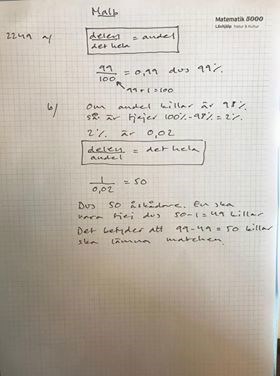 Ma1b
Matematik 5000
Läxhjälp Natur & Kultur
2249 a/ delen/det hela = andel
99/100 = 0,99 dvs 99%
99+1=100
b/ Om andel killar är 98%
så är tjejer 100%-98%=2%
2% är 0,02
delen/andel = det hela
1/0,02 = 50
Dvs 50 åskådare. En ska
vara tjej dvs 50-1=49 killar
Det betyder att 99-49=50 killar
ska lämna matchen